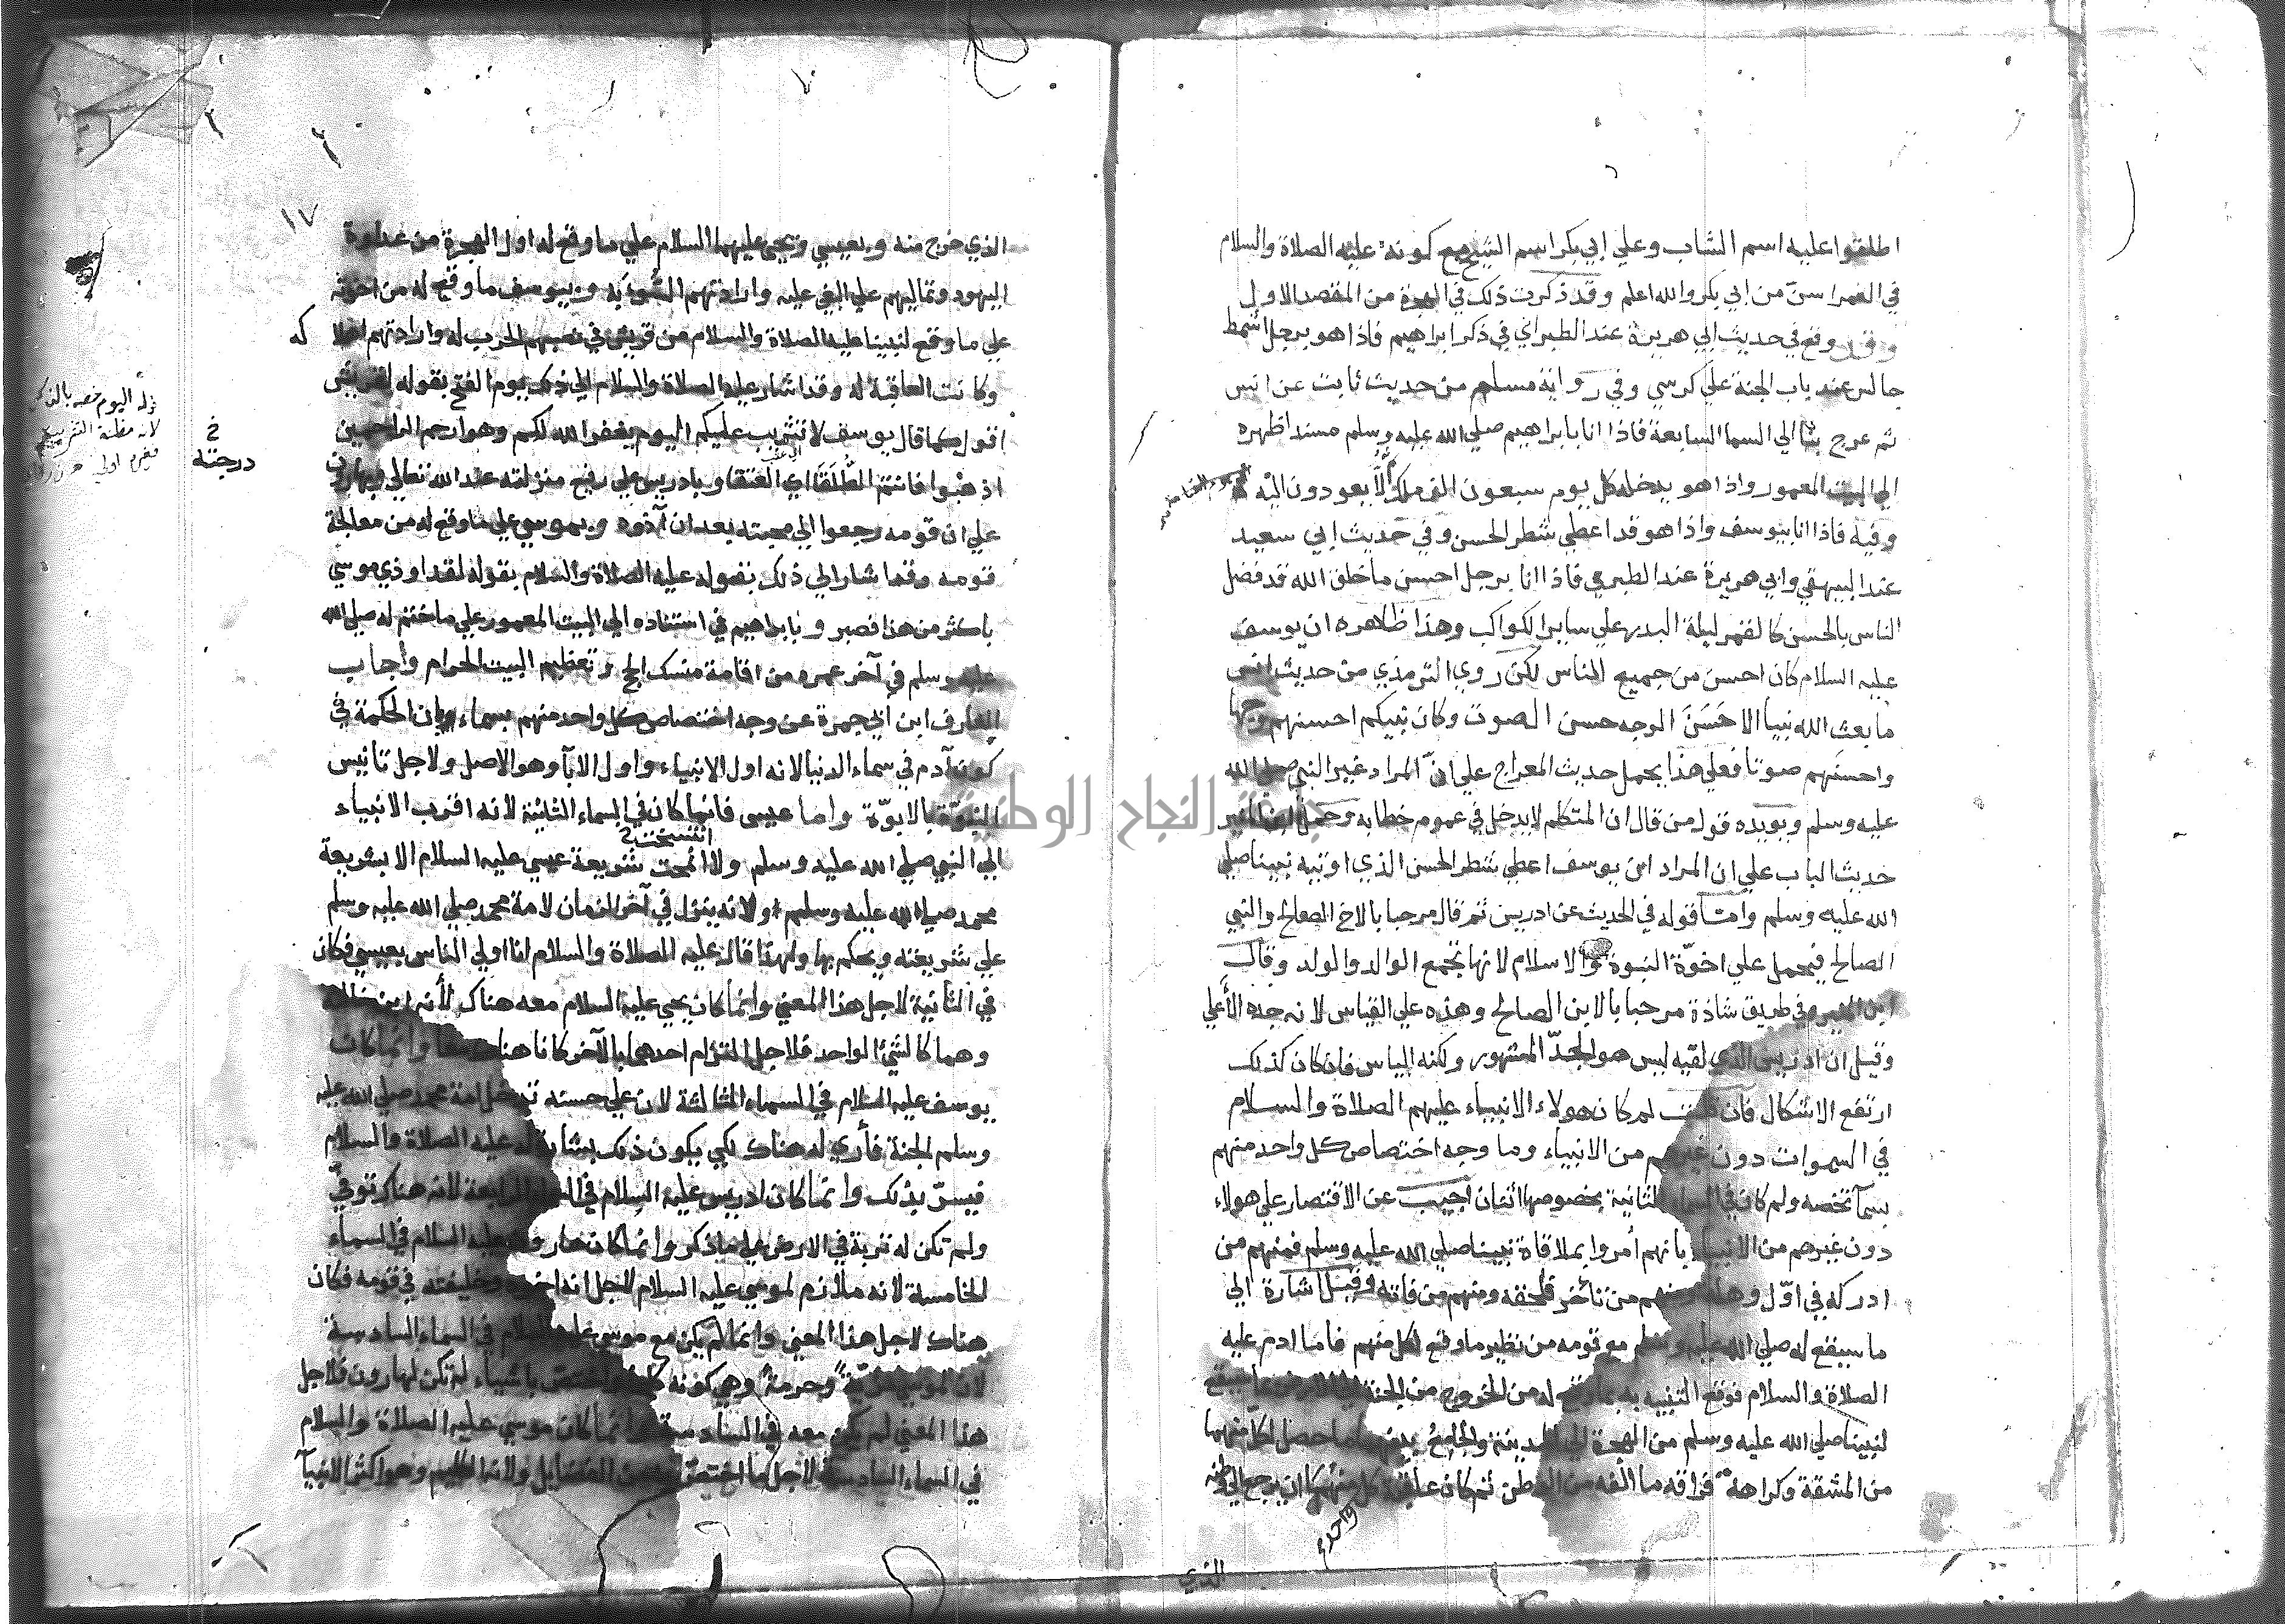 اطلقوا عليه اسم الشاب وعلي ابي بكر اسم الشيخ مع كونه عليه الصلاة والسلام
في العمر اسن من ابي بكر والله اعلم وقد ذكرت ذلك في الهجرة من المقصد الاول
وقد وقع في حديث ابي هريرة عند الطبراني في ذكر ابراهيم فاذا هو برجل اشمط
جالس عند باب الجنة علي كرسي وفي رواية مسلم من حديث ثابت عن انس
ثم عرج بنا الي السما السابعة فاذا انا بابراهيم صلي الله عليه وسلم مسندا ظهره
الي البيت المعمور واذا هو يدخله كل يوم سبعون الف ملك لا يعودون اليه
وفيه فاذا انا بيوسف واذا هو قد اعطي شطر الحسن وفي حديث ابي سعيد
عند البيهقي وابي هريرة عند الطبري فاذا انا برجل احسن ما خلق الله قد فضل
الناس بالحسن كالقمر ليلة البدر علي ساير الكواكب وهذا ظاهره ان يوسف
عليه السلام كان احسن من جميع الناس لكن روي الترمذي من حديث انس
ما بعث الله نبيا الا حَسَنَ الوجه حسن الصوت وكان نبيكم احسنهم وجها
واحسنهم صوتا فعلي هذا يحمل حديث المعراج علي انّ المراد غير النبي صلي الله
عليه وسلم ويويده قول من قال ان المتكلم لا يدخل في عموم خطابه وحمل ابن المنير
حديث الباب علي ان المراد ان يوسف اعطي شطر الحسن الذي اوتيه نبينا صلي
الله عليه وسلم وامّا قوله في الحديث عن ادريس ثم قال مرحبا بالاخ الصالح والنبي
الصالح فيحمل علي اخوّة النبوة والاسلام لانها تجمع الوالد والولد وقال
ابن المنير وفي طريق شاذة مرحبا بالابن الصالح وهذه علي القياس لانه جده الأعلي
وقيل ان ادريس الذي لقيه ليس هو الجدّ المشهور ولكنه الياس فان كان كذلك
ارتفع الاشكال فان قلت لم كان هولاء الانبياء عليهم الصلاة والسلام
في السموات دون غيرهم من الانبياء وما وجه اختصاص كل واحد منهم
بسمآ تخصه ولم كان في السماء الثانية بخصوصها اثنان اجيب عن الاقتصار علي هولاء
دون غيرهم من الانبياء بانهم أمروا بملاقاة نبينا صلي الله عليه وسلم فمنهم من
ادركه في اوّل وهلة ومنهم من تأخر فلحقه ومنهم من فاته وقيل اشارة الي
ما سيقع له صلي الله عليه وسلم مع قومه من نظير ما وقع لكل منهم فاما ادم عليه
الصلاة والسلام فوقع التنبيه به بما وقع له من الخروج من الجنة الي الارض بما سيقع
لنبينا صلي الله عليه وسلم من الهجرة الي المدينة والجامع بينهما ما حصل لكل منهما
من المشقة وكراهة فراقه ما الفه من الوطن ثم كان عاقبة كل منهما ان يرجع الي وطنه
واحد
الذي
١٧
الذي خرج منه وبعيسي ويحي عليهما السلام علي ما وقع له اول الهجرة من عداوة
اليهود وتماليهم علي البغي عليه وارادتهم السُّوء به وبيوسف ما وقع له من اخوته
علي ما وقع لنبينا عليه الصلاة والسلام من قريش في نصبهم الحرب له وارادتهم
وكانت العاقبة له وقد اشار عليه الصلاة والسلام الي ذلك يوم الفتح بقوله لقريش
اقول كما قال يوسف لا تثريب عليكم اليوم يغفر الله لكم وهو ارحم الراحمين
اذهبوا فانتم الطُّلَقَا اي العتقا وبادريس علي رفيع منزلته عند الله تعالي وبهارون
علي ان قومه رجعوا الي محبته بعد ان آذوه وبموسي علي ما وقع له من معالجة
قومه وقد اشار الي ذلك بقوله عليه الصلاة والسلام بقوله لقد اوذي موسي
باكثر من هذا فصبر وبابراهيم في استناده الي البيت المعمور علي ما ختم له صلي الله
عليه وسلم في آخر عمره من اقامة منسك الحج وتعظيم البيت الحرام وأجاب
العارف ابن ابي جمرة عن وجه اختصاص كل واحد منهم بسماء بان الحكمة في
كون آدم في سماء الدنيا لانه اول الانبياء واول الابآ وهو الاصل ولاجل تانيس
النبوّة بالابوّة واما عيسي فانما كان في السماء الثانية لانه اقرب الانبياء
الي النبي صلي الله عليه وسلم ولا انمحت شريعة عيسي عليه السلام الا بشريعة
محمد صلي الله عليه وسلم ولانه ينزل في آخر الزمان لامة محمد صلي الله عليه وسلم
علي شريعته ويحكم بها ولهذا قال عليه الصلاة والسلام انا اولي الناس بعيسي فكان
في الثانية لاجل هذا المعني وانما كان يحيي عليه السلام معه هناك لأنه ابن خالته
وهما كالشئ الواحد فلاجل التزام احدهما بالآخر كانا هناك معا وانما كان
يوسف عليه السلام في السماء الثالثة لان علي حسنه تدخل امة محمد صلي الله عليه
وسلم الجنة فأري له هناك لكي يكون ذلك بشارة له عليه الصلاة والسلام
فيسرّ بذلك وانما كان ادريس عليه السلام في السماء الرابعة لانه هناك توفيّ
ولم تكن له تربة في الارض علي ما ذكر وانما كان هارون عليه السلام في السماء
الخامسة لانه ملازم لموسي عليه السلام لاجل انه اخوه وخليفته في قومه فكان
هناك لاجل هذا المعني وانما لم يكن مع موسي عليه السلام في السماء السادسة
لان لموسي مزيّةً وحرمةً وهي كونه كليما واختص باشياء لم تكن لهارون فلاجل
هذا المعني لم يكن معه في السادسة وانما كان موسي عليه الصلاة والسلام
في السماء السادسة لاجل ما اختص به من الفضايل ولانه الكليم وهو اكثر الانبيآ
خ
درجته
جامعة النجاح الوطنية